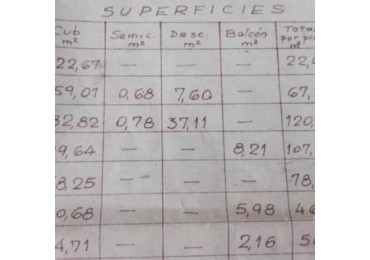 SUPERFICIES
Cub. m² Semic. m² Desc. m² Balcón m² Total por pis m²
22,67 — — — 22,6
59,01 0,68 7,60 — 67,
82,82 0,78 37,11 — 120,
9,64 — — 8,21 107,
8,25 — — — 78,
0,68 — — 5,98 46
4,71 — — 2,16 5